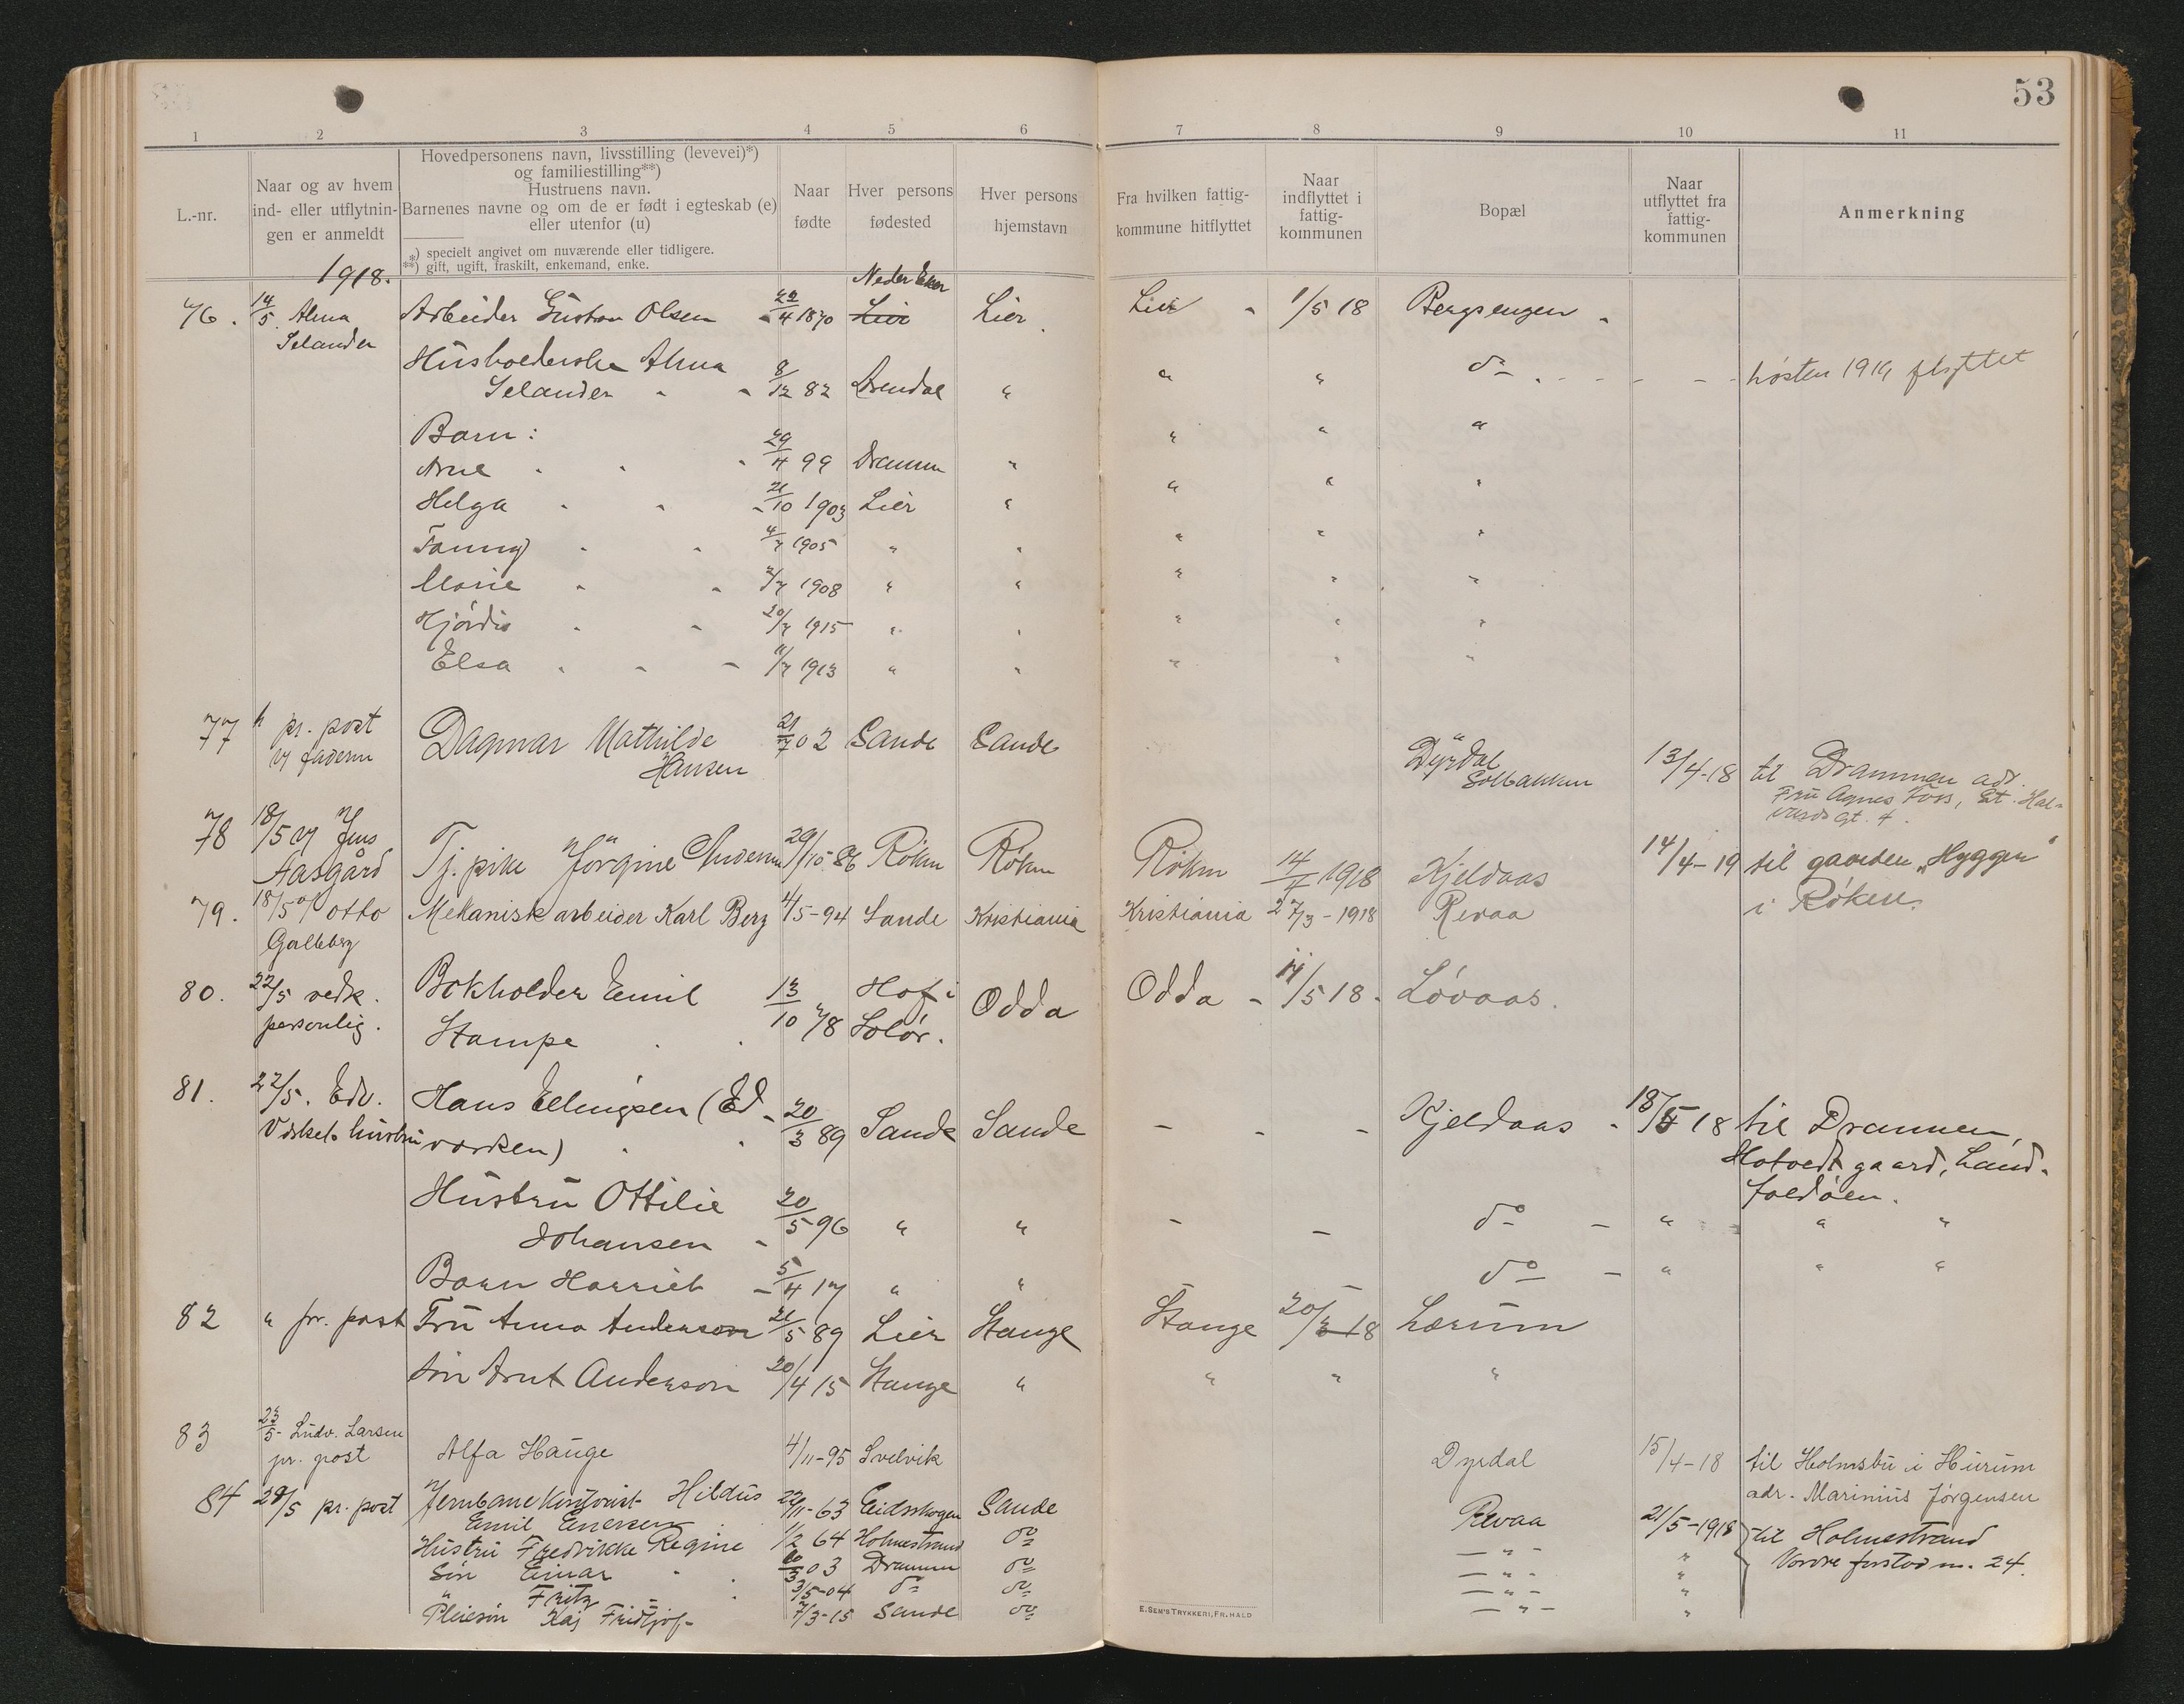 53
1 2 3 4 5 6 7 8 9 10 11
L.-nr.
Naar og av hvem
ind- eller utflytnin-
gen er anmeldt
Hovedpersonens navn, livsstilling (levevei)*)
og familiestilling**)
Hustruens navn.
Barnenes navne og om de er født i egteskab (e)
eller utenfor (u)
*) specielt angivet om nuværende eller tidligere.
**) gift, ugift, fraskilt, enkemand, enke.
Naar
fødte
Hver persons
fødested
Hver persons
hjemstavn
Fra hvilken fattig-
kommune hitflyttet
Naar
indflyttet i
fattig-
kommunen
Bopæl
Naar
utflyttet fra
fattig-
kommunen
Anmerkning
1918.
Neder Eker
76. 14/5 Alma Arbeider Gustav Olsen 22/4 1870 Lier Lier Lier 1/5 18 Bergsengen
Selander
Husholderske Alma
Selander 8/12 82 Arendal " " " do høsten 1919 flyttet
Barn:
Arne 29/4 99 Drammen " " " "
Helga 21/10 1903 Lier " " " "
Fanny 4/7 1905 " " " " "
Marie 2/7 1908 " " " " "
Hjördis 20/7 1915 " " " " "
Elsa 11/7 1913 " " " " "
77 pr. post Dagmar Mathilde 21/7 02 Sande Sande Dyrdal 13/4-18 til Drammen adr.
v/ faderen Hansen Solbakken Fru Agnes Foss, St. Hal-
vards gt. 4.
78 18/5 v/ Jens Tj. pike Jörgine Andersen 29/10-86 Röken Röken Röken 14/4 1918 Kjeldaas 14/4-19 til gaarden "Hyggen"
Aasgård i Röken.
79. 18/5 v/ Otto Mekanisk arbeider Karl Berg 4/5-94 Sande Kristiania Kristiania 27/3-1918 Revaa
Galleberg
80. 22/5 vedk. Bokholder Emil 13/10 78 Hof i Odda Odda - 11/5 18. Lövaas.
personlig. Stampe Solör.
81. 22/5. Edv. Hans Ellingsen (Ed- 20/3 89 Sande Sande - - - Kjeldaas 18/5 18 til Drammen,
Varskets hustru varsken) Hotvedt gaard, Land-
faldöen.
Hustru Ottilie 20/5 96 " " - - do - " " "
Johansen
Barn Harriet - 5/4 17 " " - do - " " "
82 " pr. post Fru Anna Anderson 21/5 89 Lier Stange Stange 20/3 18 Lærum
Sön Arnt Anderson 20/4 15 Stange " " " "
83 23/5- Ludv. Larsen
pr. post Alfa Hauge 4/11-95 Svelvik Dyrdal 15/4-18 til Holmsbu i Hurum
adr. Marinius Jörgensen
84 28/5 pr. post Jernbanekontorist Hildus 22/11-63 Eidsskogen Sande Revaa 21/5-1918 til Holmestrand
Emil Enersen
Hustru Fredrikke Regine 1/2 64 Holmestrand do - " - " Vordre forstad no. 24.
Sön Einar 20/3 03 Drammen do - " - "
" Fritz 3/5-04 do do - " - "
Pleiesön Kaj Fridtjof- 7/3-15 Sande do - " - "
E. SEM'S TRYKKERI, FR. HALD